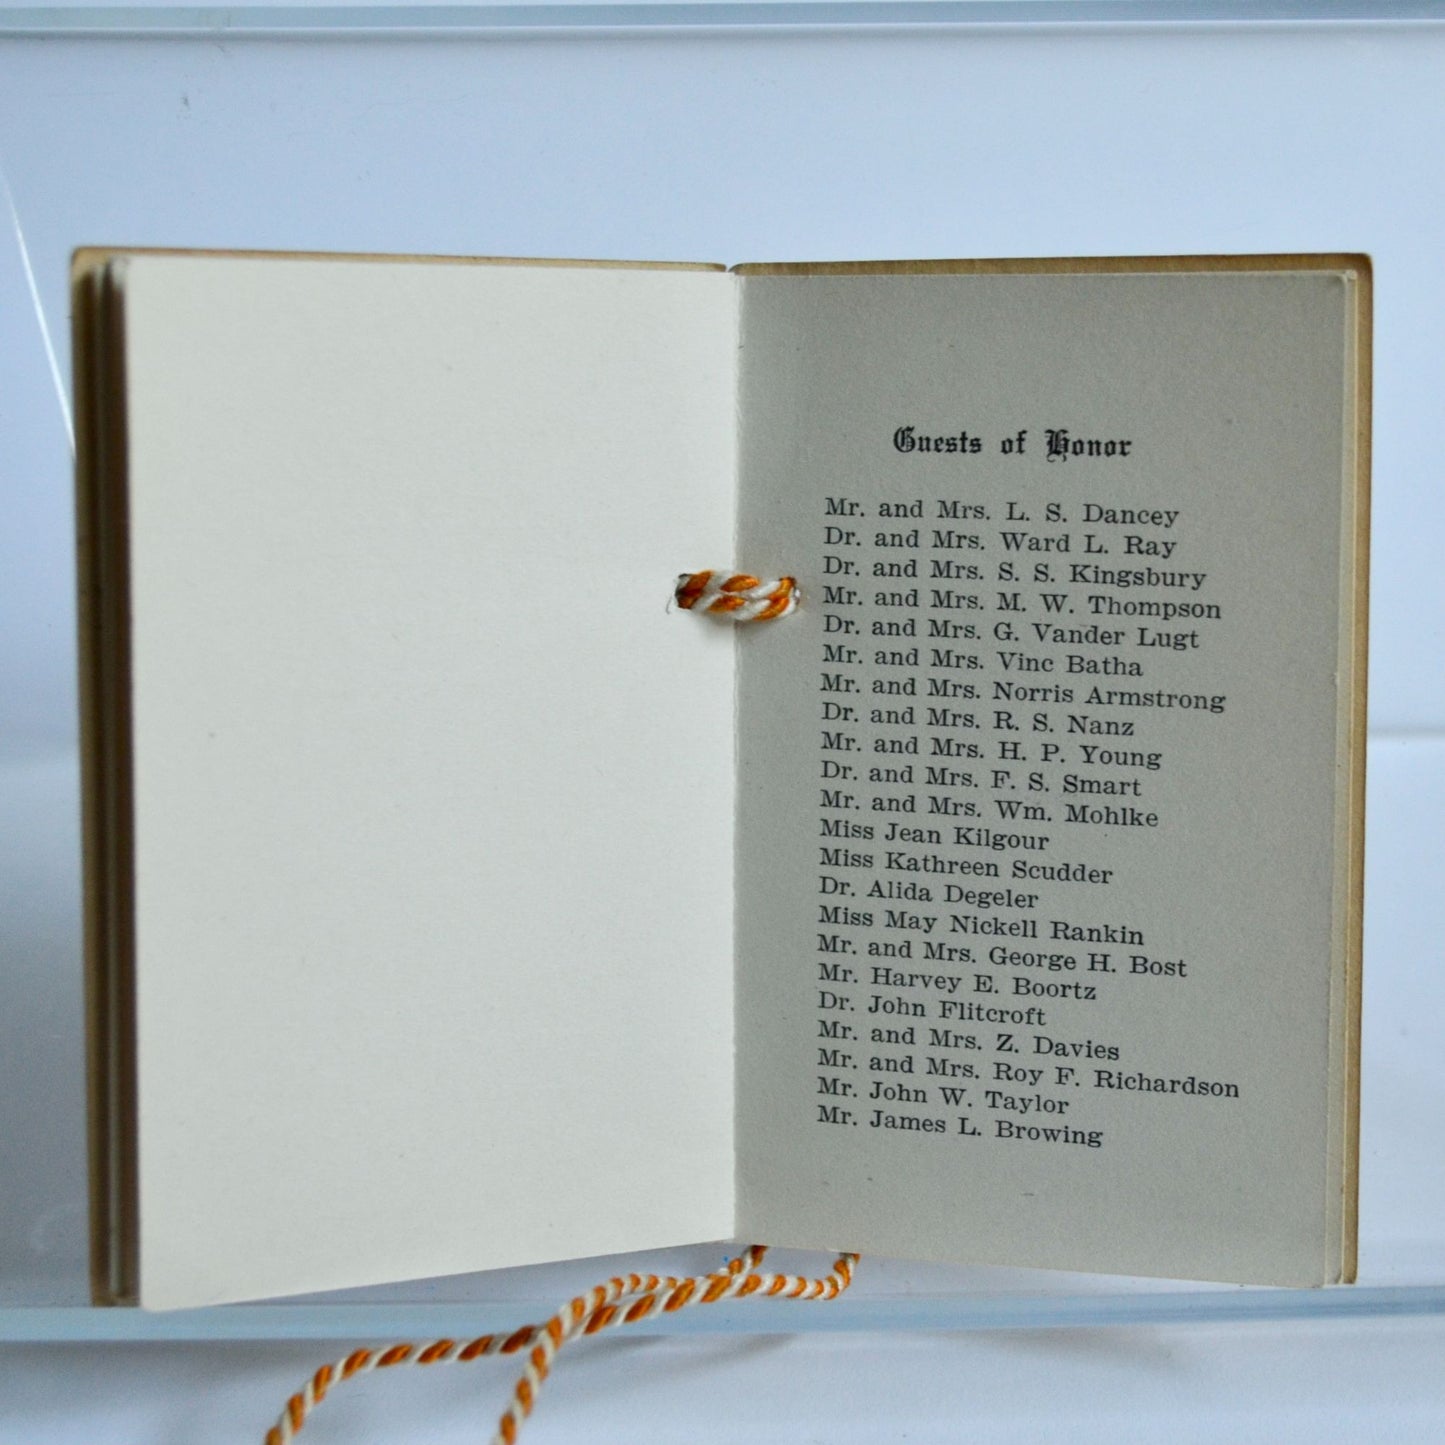 Guests of Honor
Mr. and Mrs. L. S. Dancey
Dr. and Mrs. Ward L. Ray
Dr. and Mrs. S. S. Kingsbury
Mr. and Mrs. M. W. Thompson
Dr. and Mrs. G. Vander Lugt
Mr. and Mrs. Vinc Batha
Mr. and Mrs. Norris Armstrong
Dr. and Mrs. R. S. Nanz
Mr. and Mrs. H. P. Young
Dr. and Mrs. F. S. Smart
Mr. and Mrs. Wm. Mohlke
Miss Jean Kilgour
Miss Kathreen Scudder
Dr. Alida Degeler
Miss May Nickell Rankin
Mr. and Mrs. George H. Bost
Mr. Harvey E. Boortz
Dr. John Flitcroft
Mr. and Mrs. Z. Davies
Mr. and Mrs. Roy F. Richardson
Mr. John W. Taylor
Mr. James L. Browing